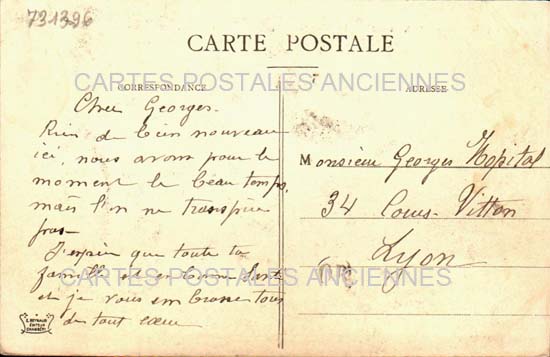 731396
CARTE POSTALE
CARTES POSTALES ANCIENNES
CORRESPONDANCE
ADRESSE
Cher Georges.
Rien de bien nouveau
ici, nous avons pour le
moment le beau temps,
mais l'on ne transpire
pas.
J'espère que toute ta
famille est en bonne santé
et je vous embrasse tous
de tout cœur
Monsieur Georges Hopital
34 Cours Vitton
Lyon
CARTES POSTALES ANCIENNES
E. REYNAUD
EDITEUR
CHAMBÉRY